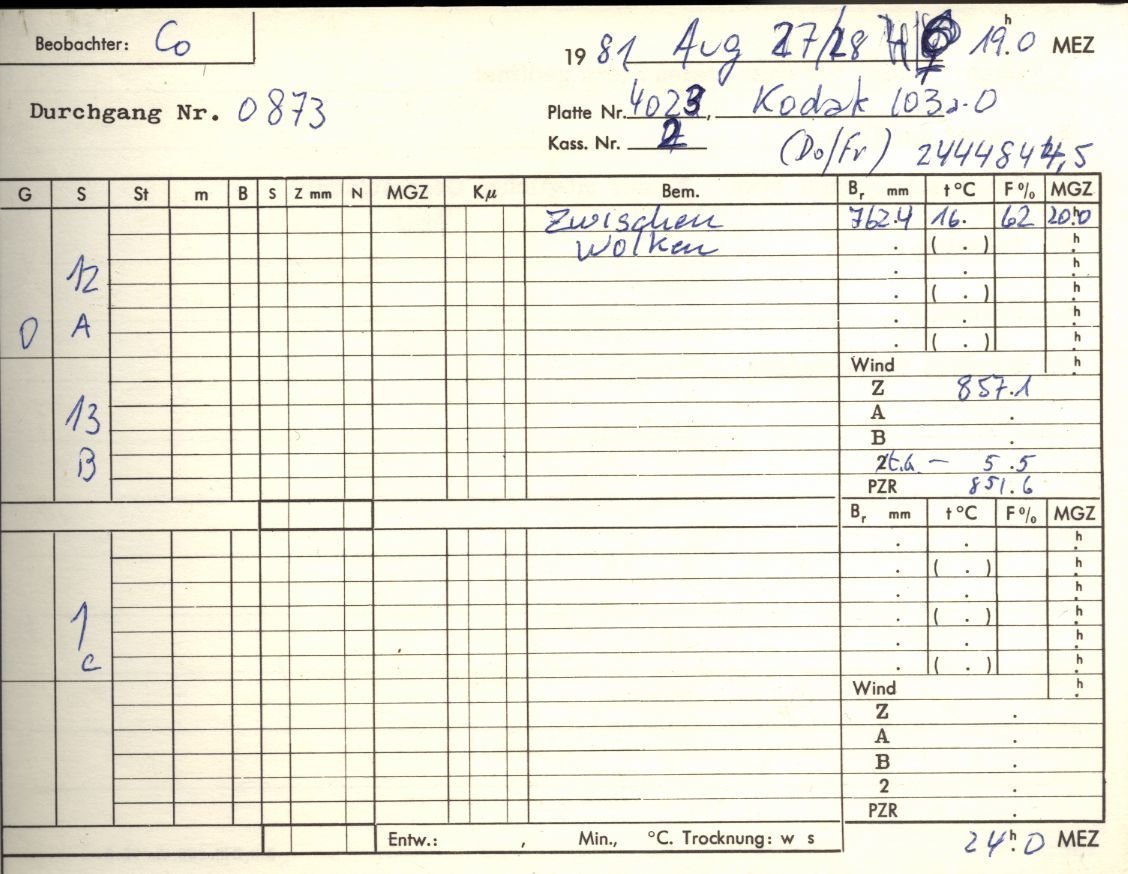 Beobachter: Co
19 81 Aug 27/28 19.h0 MEZ
Durchgang Nr. 0873
Platte Nr. 4023, Kodak 103a-O
Kass. Nr. 2
(Do/Fr) 2444844,5
G S St m B S Z mm N MGZ Kμ Bem. Br mm t °C F % MGZ
Zwischen 762.4 16. 62 20.h0
Wolken . ( . ) h
12 . . h
. ( . ) h
0 A . . h
. ( . ) h
Wind h
Z 857.1
13 A .
B .
B 2 t.h. — 5.5
PZR 851.6
Br mm t °C F % MGZ
. . h
. ( . ) h
. . h
1 . ( . ) h
. . h
c . ( . ) h
Wind h
Z .
A .
B .
2 .
PZR .
Entw.: , Min., °C. Trocknung: w s
24.h0 MEZ